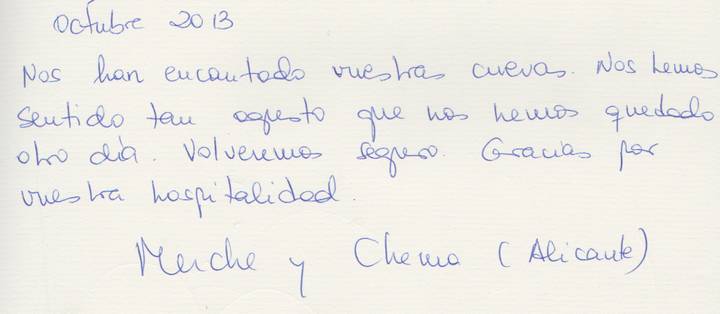 Octubre 2013
Nos han encantado vuestras cuevas. Nos hemos
sentido tan agusto que nos hemos quedado
otro día. Volveremos seguro. Gracias por
vuestra hospitalidad.
Merche y Chema (Alicante)